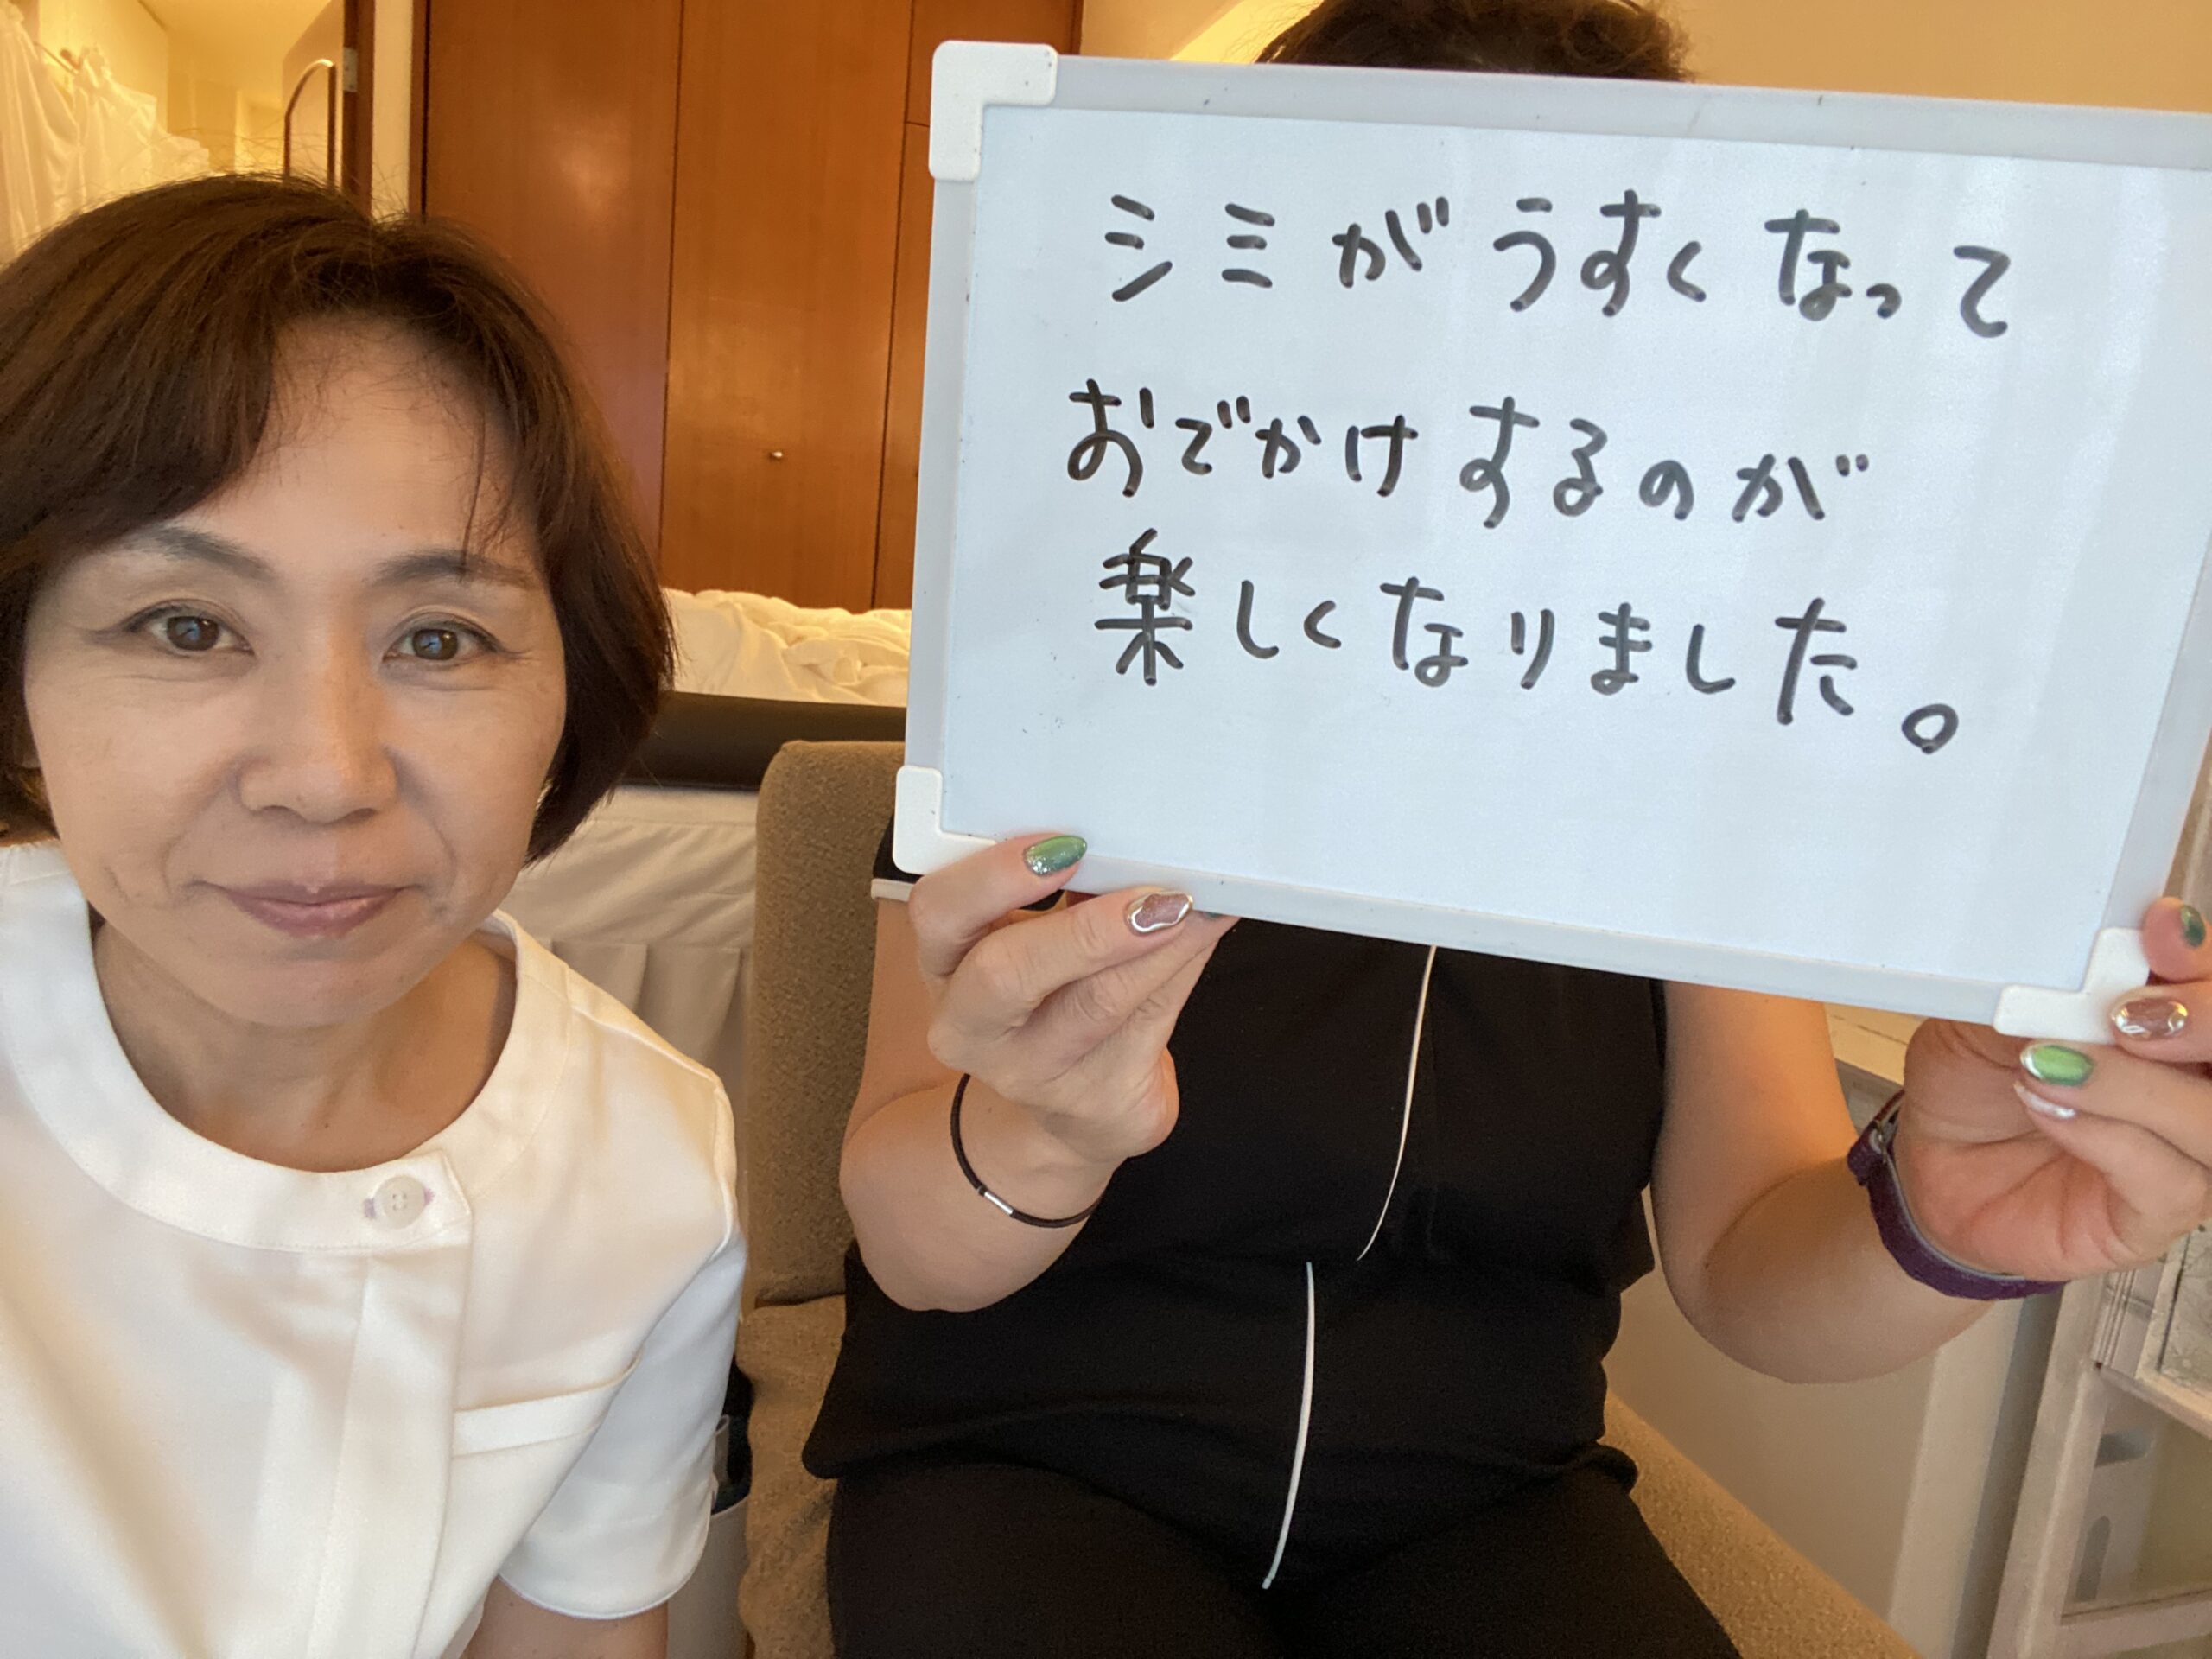 シミがうすくなって
おでかけするのが
楽しくなりました。